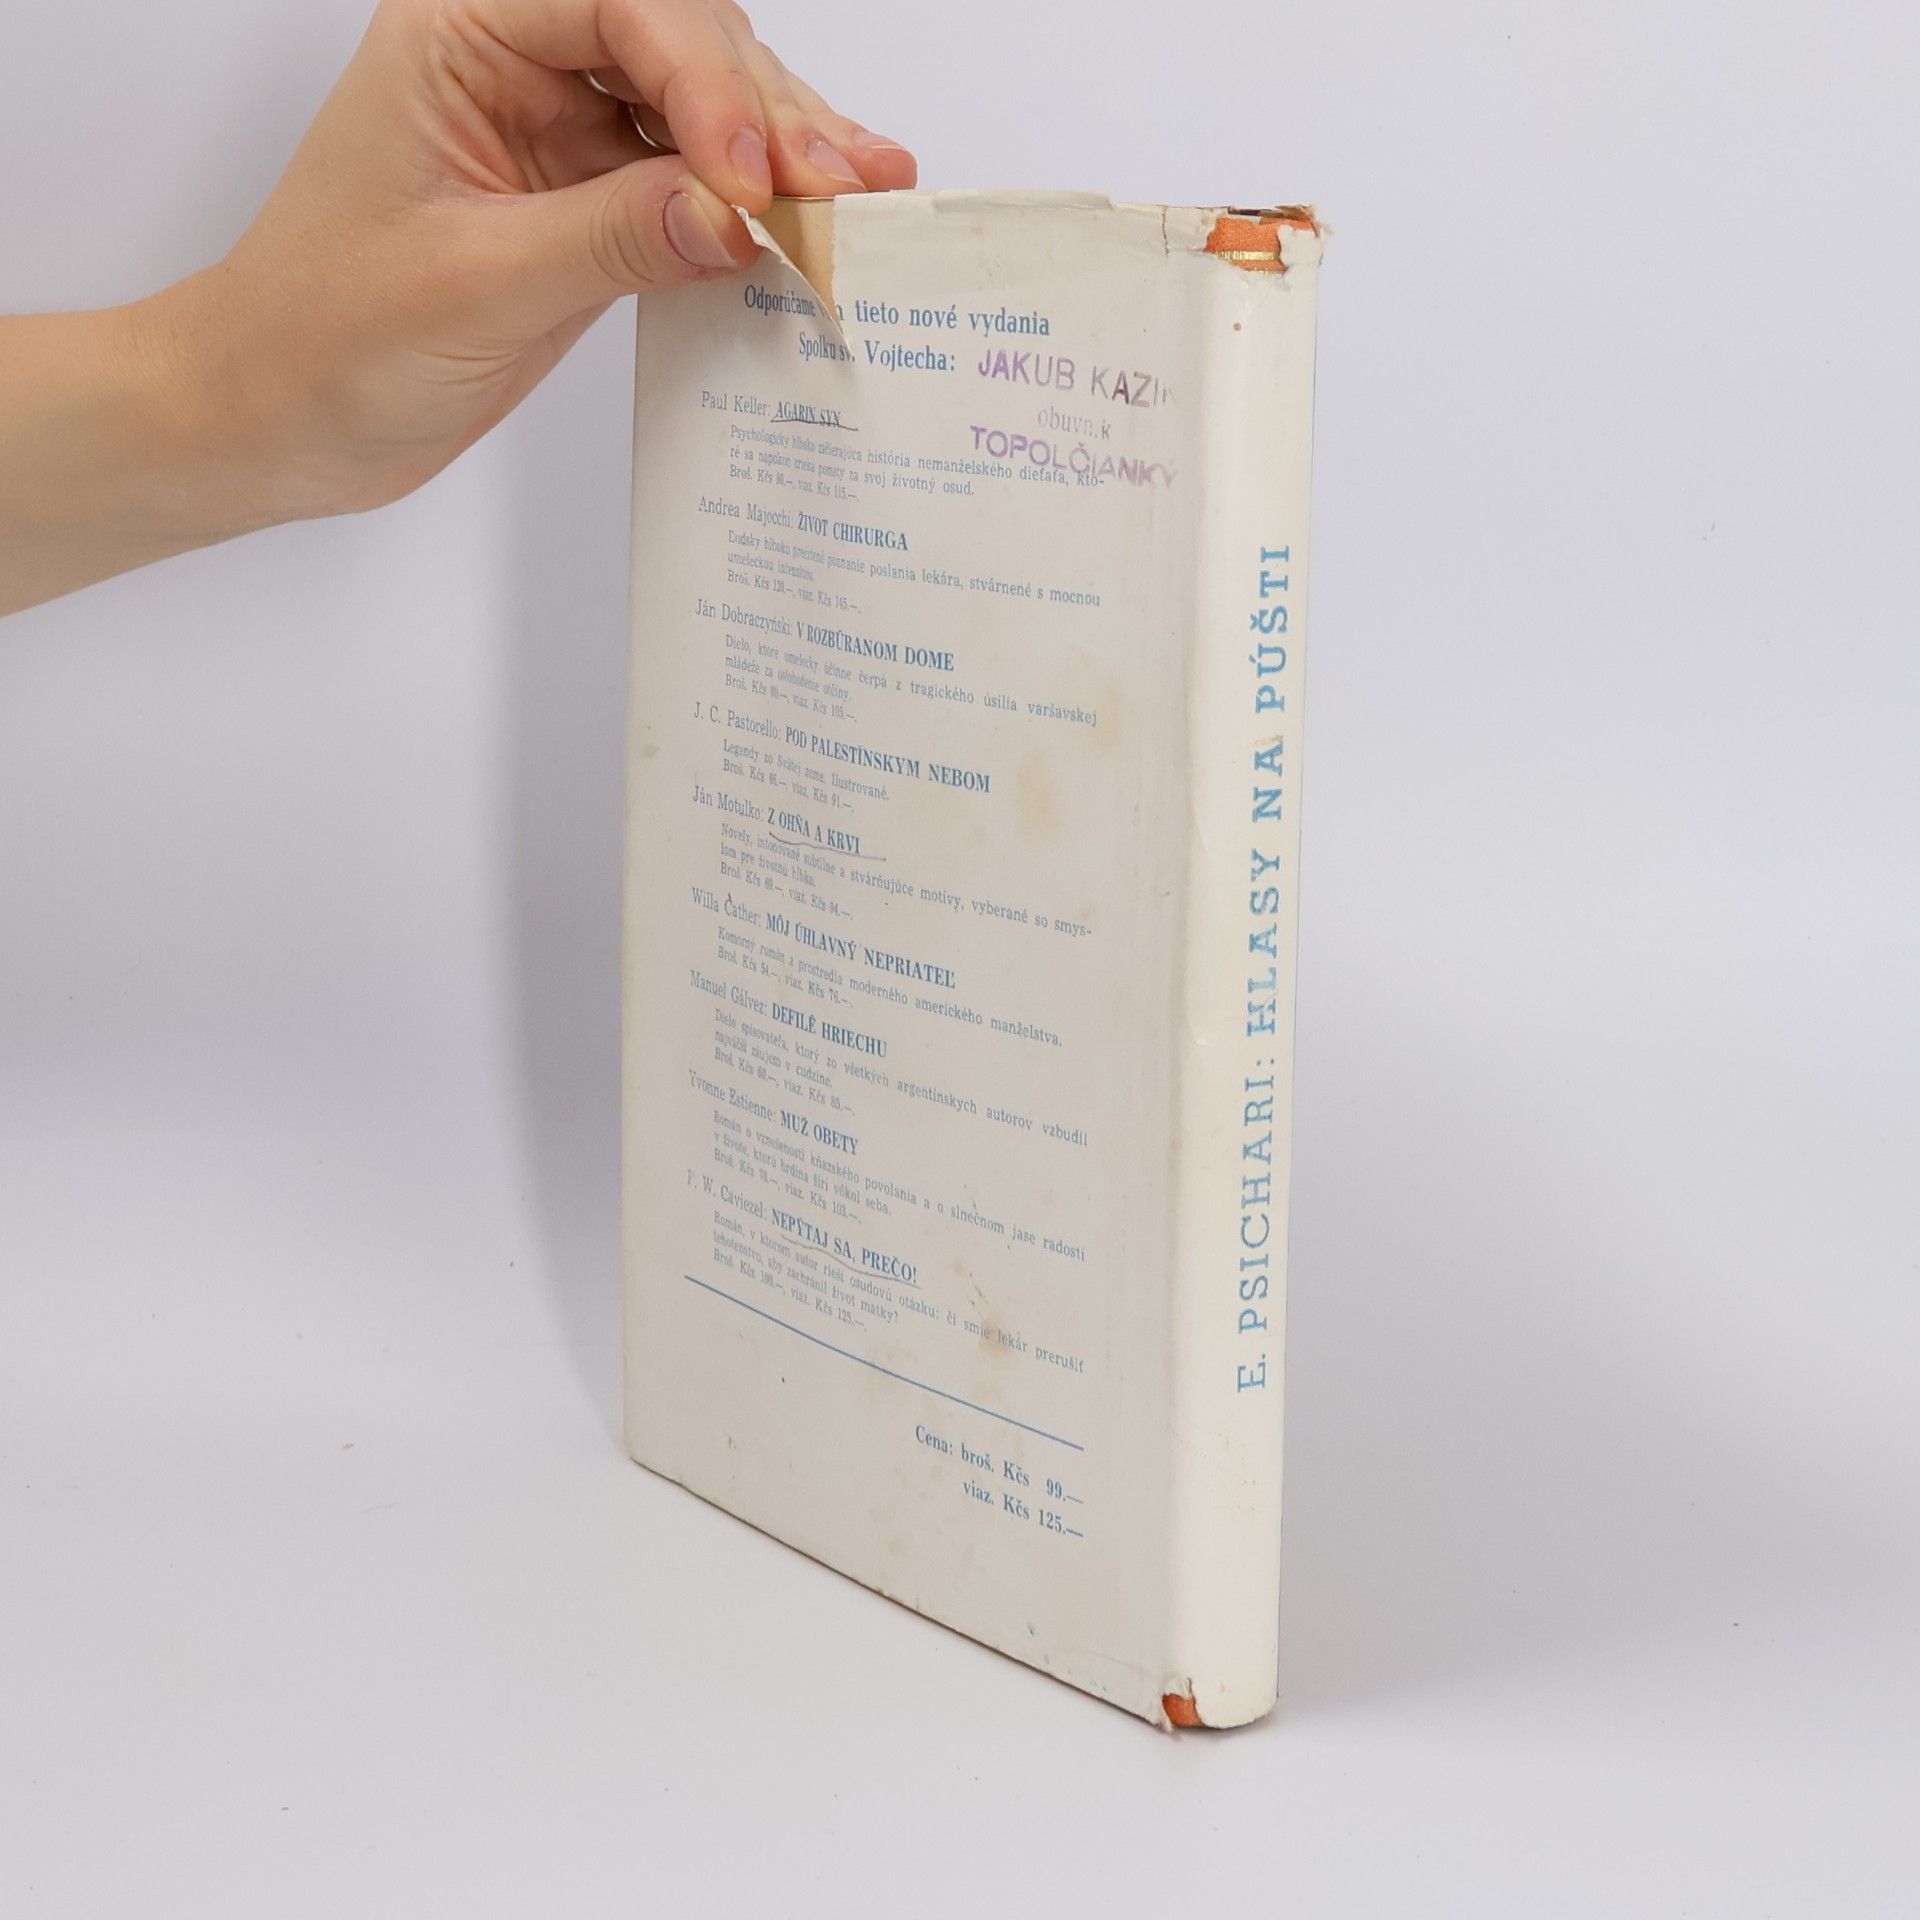 Odporúčame tieto nové vydania
Spolku sv. Vojtecha:
JAKUB
obuvník
TOPOLČIANKY
Paul Keller: AGARIN SYN
Psychologicky hlboko začierajúca história nemanželského dieťaťa, kto-
ré sa napokon zrieka pomsty za svoj životný osud.
Broš. Kčs 90.—, viaz. Kčs 115.—.
Andrea Majocchi: ŽIVOT CHIRURGA
Ľudsky hlboko precítené poznanie poslania lekára, stvárnené s mocnou
umeleckou intenzitou.
Broš. Kčs 120.—, viaz. Kčs 145.—.
Ján Dobraczyński: V ROZBÚRANOM DOME
Dielo, ktoré umelecky účinne čerpá z tragického úsilia varšavskej
mládeže za oslobodenie otčiny.
Broš. Kčs 80.—, viaz. Kčs 105.—.
J. C. Pastorello: POD PALESTÍNSKYM NEBOM
Legendy zo Svätej zeme. Ilustrované.
Broš. Kčs 66.—, viaz. Kčs 91.—.
Ján Motulko: Z OHŇA A KRVI
Novely, intonované subtílne a stvárňujúce motívy, vyberané so smys-
lom pre životnú hĺbku.
Broš. Kčs 69.—, viaz. Kčs 94.—.
Willa Čather: MÔJ ÚHLAVNÝ NEPRIATEĽ
Komorný román z prostredia moderného amerického manželstva.
Broš. Kčs 54.—, viaz. Kčs 76.—.
Manuel Gálvez: DEFILÉ HRIECHU
Dielo spisovateľa, ktorý zo všetkých argentínskych autorov vzbudil
najväčší záujem v cudzine.
Broš. Kčs 60.—, viaz. Kčs 85.—.
Yvonne Estienne: MUŽ OBETY
Román o vznešenosti kňazského povolania a o slnečnom jase radosti
v živote, ktorú hrdina šíri vôkol seba.
Broš. Kčs 78.—, viaz. Kčs 103.—.
F. W. Caviezel: NEPÝTAJ SA, PREČO!
Román, v ktorom autor rieši osudovú otázku: či smie lekár prerušiť
tehotenstvo, aby zachránil život matky?
Broš. Kčs 100.—, viaz. Kčs 125.—.
Cena: broš. Kčs 99.—
viaz. Kčs 125.—
E. PSICHARI: HLASY NA PÚŠTI